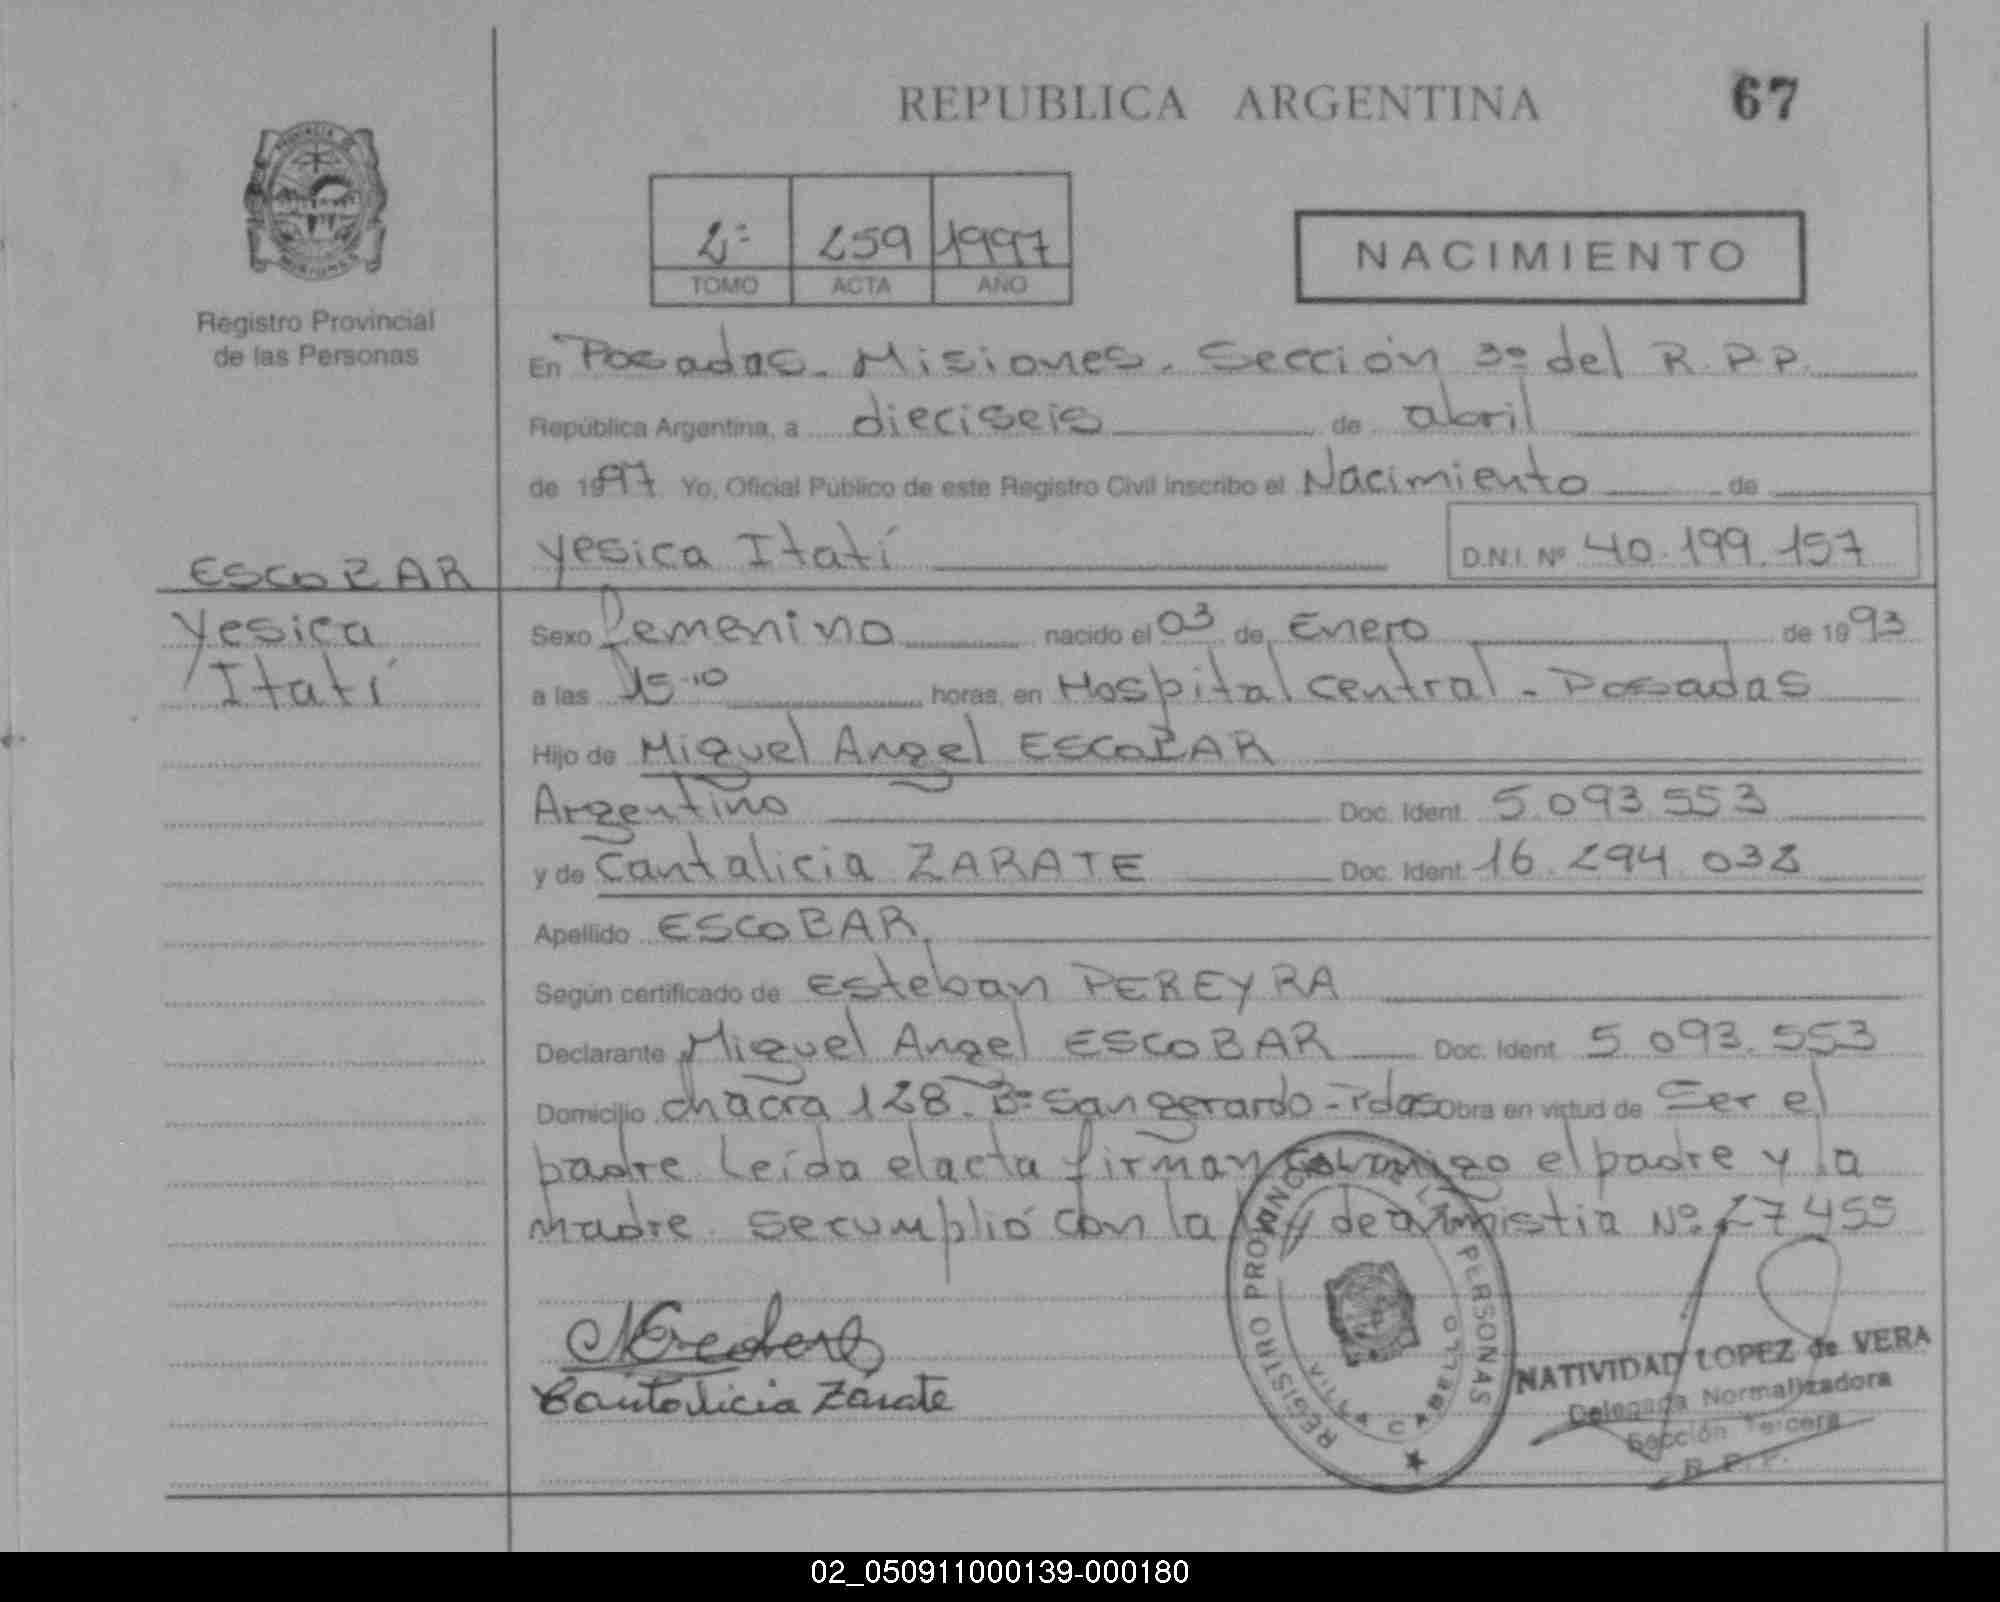 REPUBLICA ARGENTINA
67
PROVINCIA DE
MISIONES
Registro Provincial
de las Personas
2º 259 1997
TOMO ACTA AÑO
NACIMIENTO
En Posadas. Misiones. Sección 3º del R.P.P.
República Argentina, a dieciseis de abril
de 1997 Yo, Oficial Público de este Registro Civil inscribo el Nacimiento de
Yesica Itatí D.N.I. Nº 40.199.157
ESCOBAR
Yesica
Itatí
Sexo femenino nacido el 03 de Enero de 1993
a las 15.10 horas, en Hospital central - Posadas
Hijo de Miguel Angel ESCOBAR
Argentino Doc. Ident. 5.093.553
y de Cantalicia ZARATE Doc. Ident. 16.294.038
Apellido ESCOBAR
Según certificado de Esteban PEREYRA
Declarante Miguel Angel ESCOBAR Doc. Ident. 5.093.553
Domicilio chacra 128. Bº San gerardo - Pdas Obra en virtud de Ser el
padre. Leída el acta firman conmigo el padre y la
madre. Se cumplió con la ley de amnistia Nº 27455
Cantalicia Zárate
REGISTRO PROVINCIAL DE LAS PERSONAS
VILLA CABELLO
NATIVIDAD LOPEZ de VERA
Delegada Normalizadora
Sección Tercera
R. P. P.
02_050911000139-000180